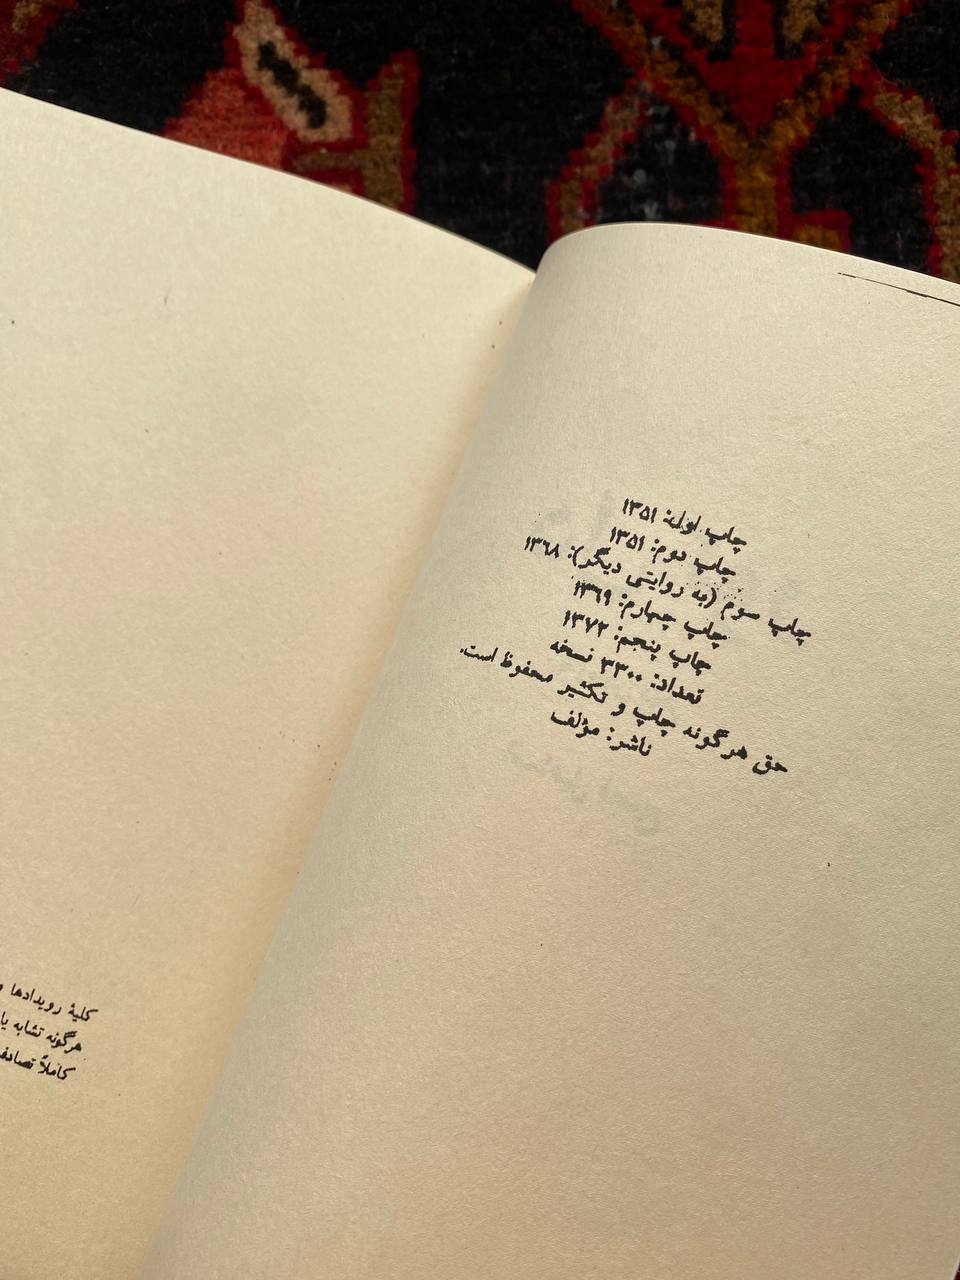 چاپ اول: ۱۳۵۱
چاپ دوم: ۱۳۵۱
چاپ سوم (به روایتی دیگر): ۱۳۶۸
چاپ چهارم: ۱۳۶۹
چاپ پنجم: ۱۳۷۲
تعداد: ۳۳۰۰ نسخه
حق هرگونه چاپ و تکثیر محفوظ است.
ناشر: مؤلف
کلیهٔ رویدادها و
هرگونه تشابه یا
کاملاً تصادف